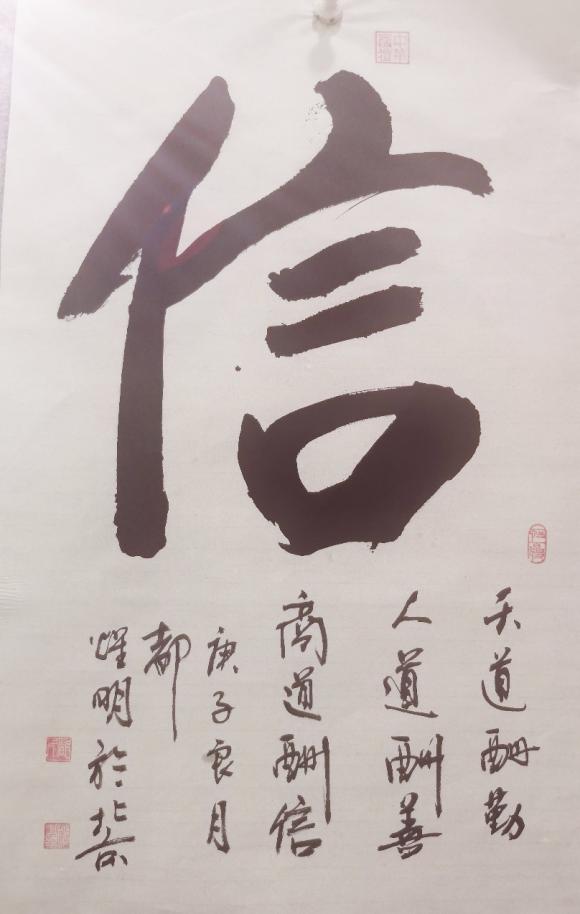 信
天道酬勤
人道酬善
商道酬信
庚子良月
都
燿明於北